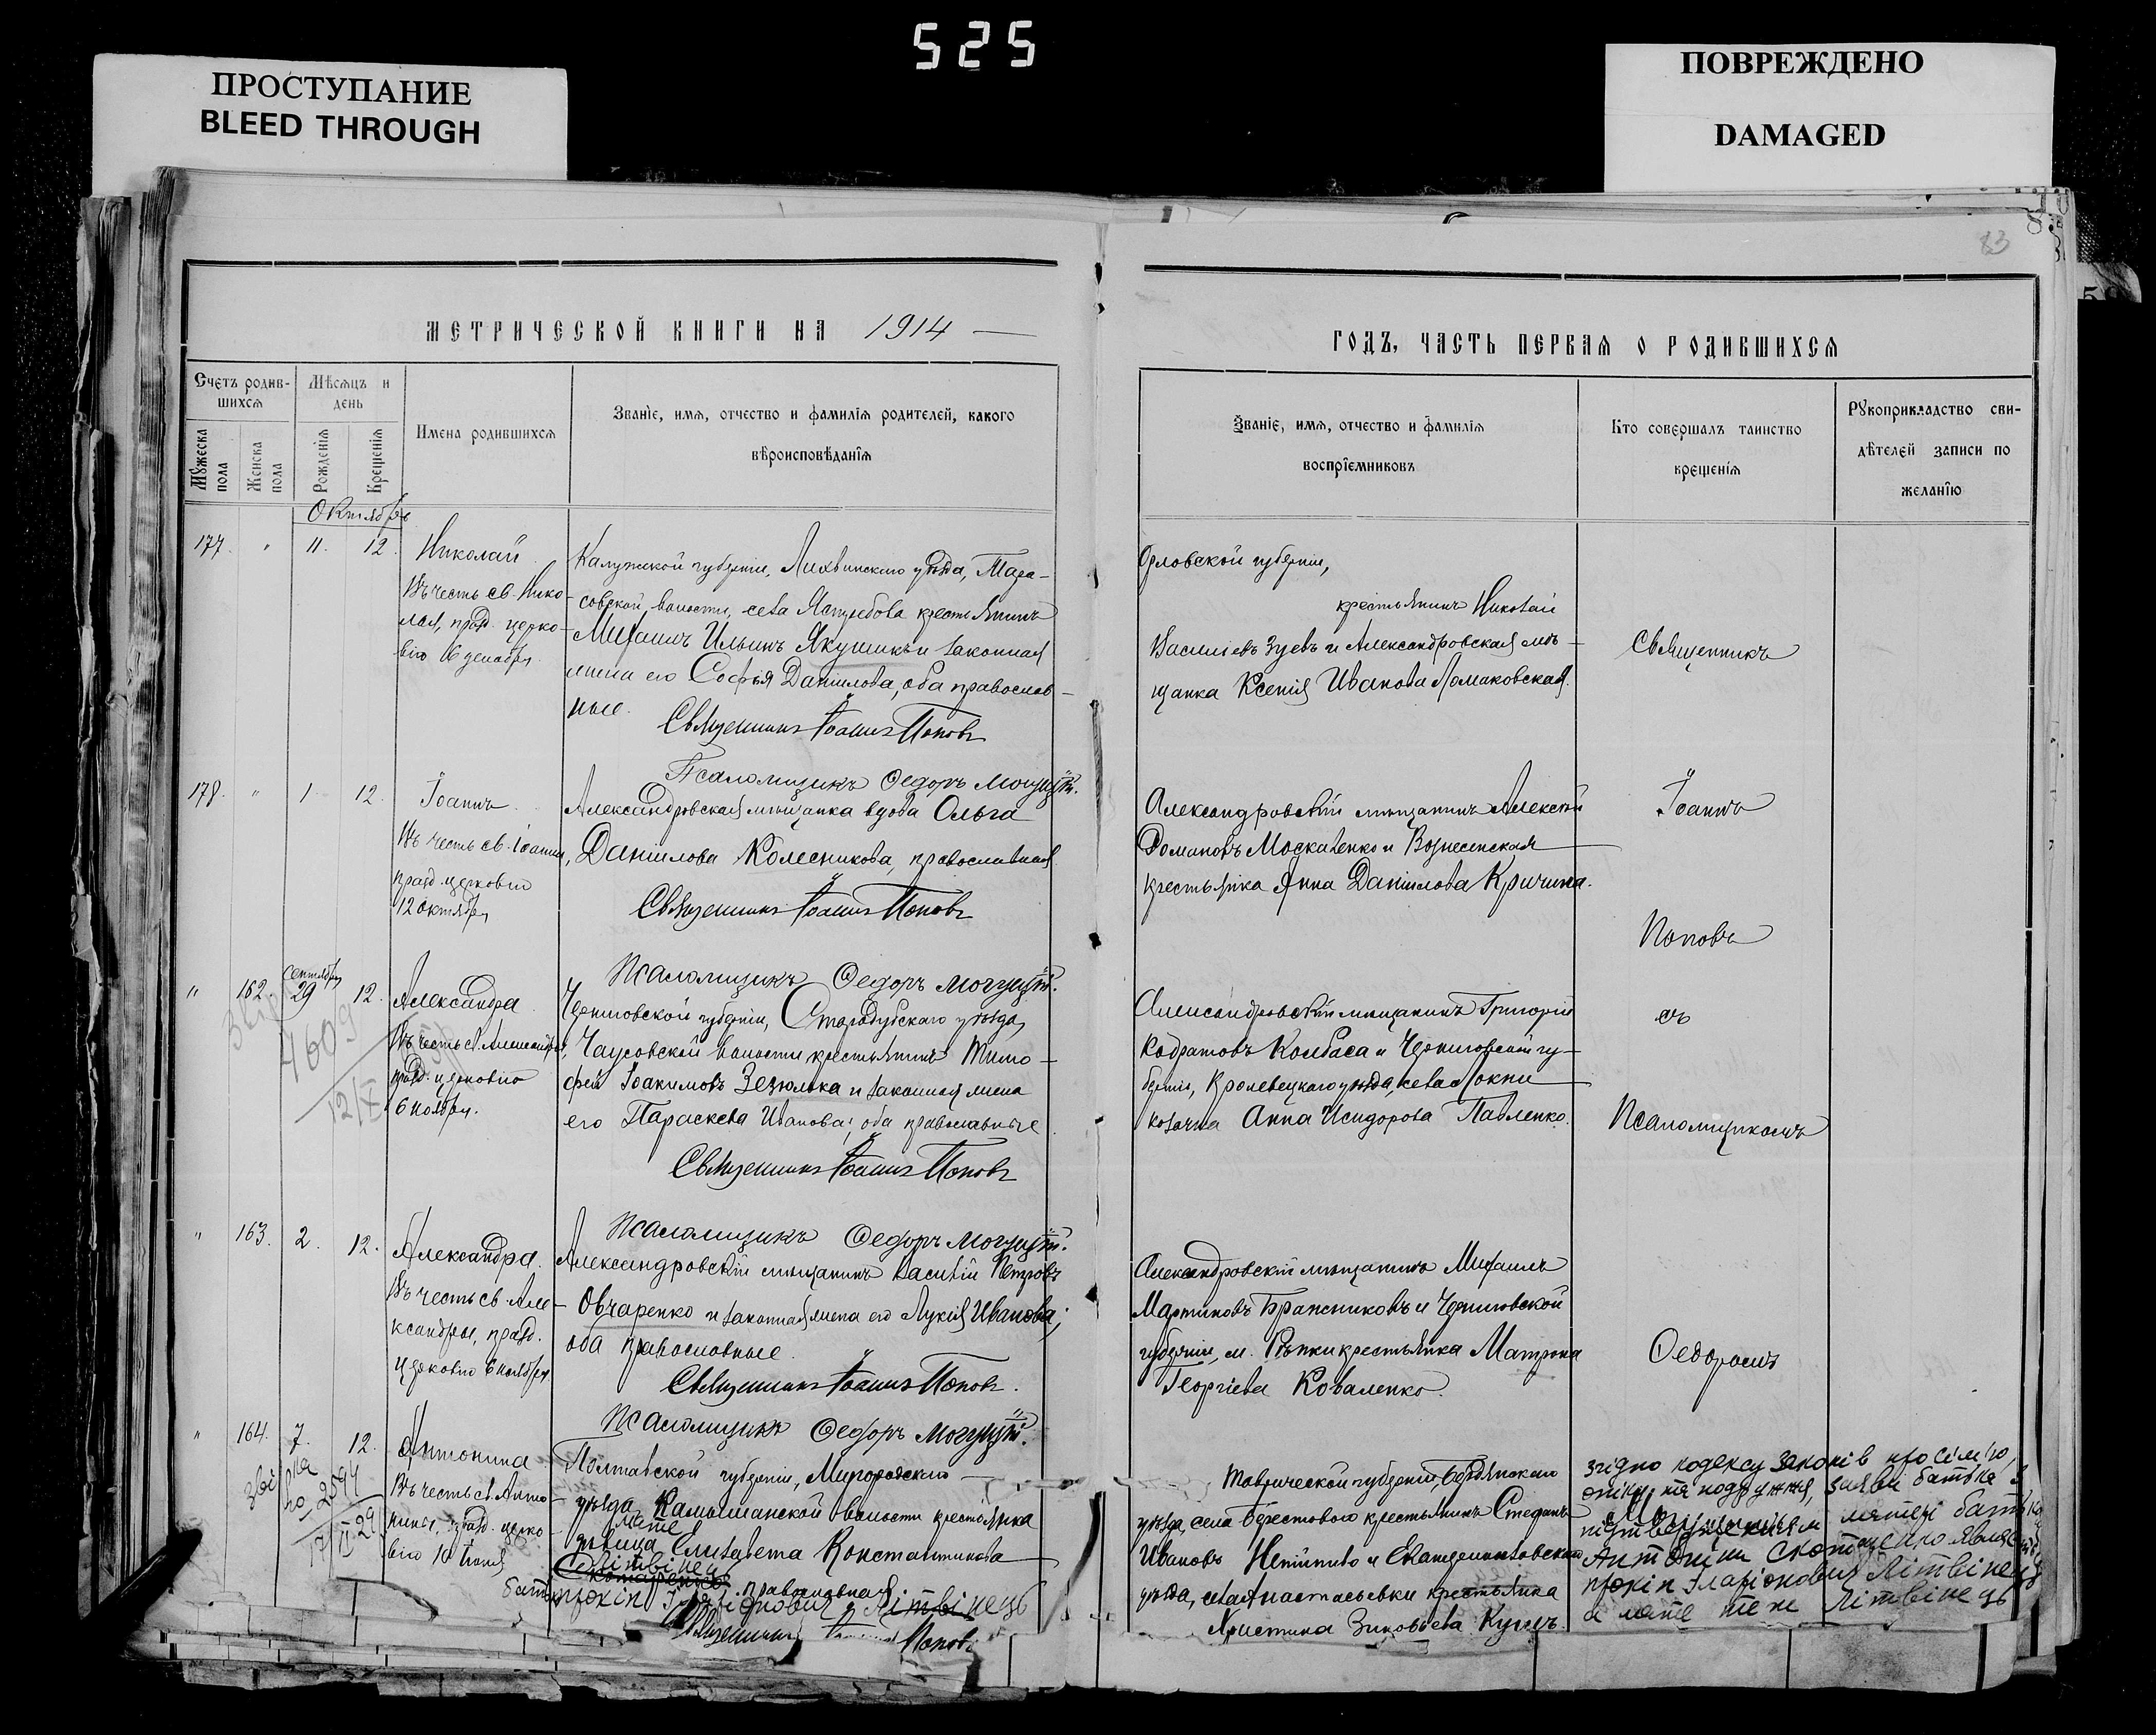 525
ПРОСТУПАНИЕ
BLEED THROUGH
ПОВРЕЖДЕНО
DAMAGED
83
МЕТРИЧЕСКОЙ КНИГИ НА 1914
Счетъ родив-
шихся
Мѣсяцъ и
день
Имена родившихся
Званіе, имя, отчество и фамилія родителей, какого
вѣроисповѣданія
Мужеска
пола
Женска
пола
Рожденія
Крещенія
Октябрь
177. " 11. 12. Николай
Въ честь св. Нико-
лая, празд. церко-
вію 6 декабря
Калужской губерніи, Лихвинскаго уѣзда, Тара-
совской волости, села Ястребова крестьянинъ
Михаилъ Ильинъ Якушинъ и законная
жена его Софья Даніилова, оба православ-
ные.
Священникъ Іоаннъ Поповъ
Псаломщикъ Ѳедоръ Могущій.
178. " 1 12. Іоаннъ
Въ честь св. Іоанна,
празд. церковію
12 октября
Александровская мѣщанка вдова Ольга
Даніилова Колесникова, православная
Священникъ Іоаннъ Поповъ
Псаломщикъ Ѳедоръ Могущій.
" 162. сентября 29 12. Александра
Въ честь св. Александры,
празд. церковію
6 ноября.
4609
Черниговской губерніи, Стародубскаго уѣзда,
Чаусовской волости крестьянинъ Тимо-
фей Іоакимовъ Зезюлька и законная жена
его Параскева Иванова; оба православные
Священникъ Іоаннъ Поповъ
Псаломщикъ Ѳедоръ Могущій.
" 163. 2. 12. Александра.
Въ честь св. Але-
ксандры, празд.
церковію 6 ноября
Александровскій мѣщанинъ Василій Петровъ
Овчаренко и законная жена его Лукія Иванова;
оба православные.
Священникъ Іоаннъ Поповъ.
Псаломщикъ Ѳедоръ Могущій.
" 164. 7. 12. Антонина
Въ честь св. Анто-
нины, празд. церко-
вію 10 Іюня
2594
Полтавской губерніи, Миргородскаго
уѣзда, Камышанской волости крестьянка
мате
дѣвица Елисавета Константинова
Літвінец
православная
Прокіп Іларіонович Літвінець
Священникъ Поповъ
ГОДЪ, ЧАСТЬ ПЕРВАЯ О РОДИВШИХСЯ
Званіе, имя, отчество и фамилія
воспріемниковъ
Кто совершалъ таинство
крещенія
Рукоприкладство сви-
дѣтелей записи по
желанію
Орловской губерніи,
крестьянинъ Николай
Васильевъ Зуевъ и Александровская мѣ-
щанка Ксенія Иванова Ломаковская.
Александровскій мѣщанинъ Алексѣй
Романовъ Москаленко и Вознесенская
крестьянка Анна Даніилова Кричина.
Александровскій мѣщанинъ Григорій
Кодратовъ Колбаса и Черниговской гу-
берніи, Кролевецкаго уѣзда, села Локни
козачка Анна Исидорова Павленко.
Александровскій мѣщанинъ Михаилъ
Мартиновъ Бражниковъ и Черниговской
губерніи, м. Рѣпки крестьянка Матрона
Георгіева Коваленко.
Таврической губерніи, Бердянскаго
уѣзда, села Берестового крестьянинъ Стефанъ
Ивановъ и Екатеринославскаго
уѣзда, села Анастасьевки крестьянка
Христина Зиновьева Куцъ.
Священникъ
Іоаннъ
Поповъ
съ
Псаломщикомъ
Ѳедоромъ
Могущимъ
згідно кодексу законів про сім'ю,
опіку та подружжя, заяви батька з
підтвердженням матері батьком
Антоніни
Прокіп Іларіонович Літвінець
а мате теж Літвінець